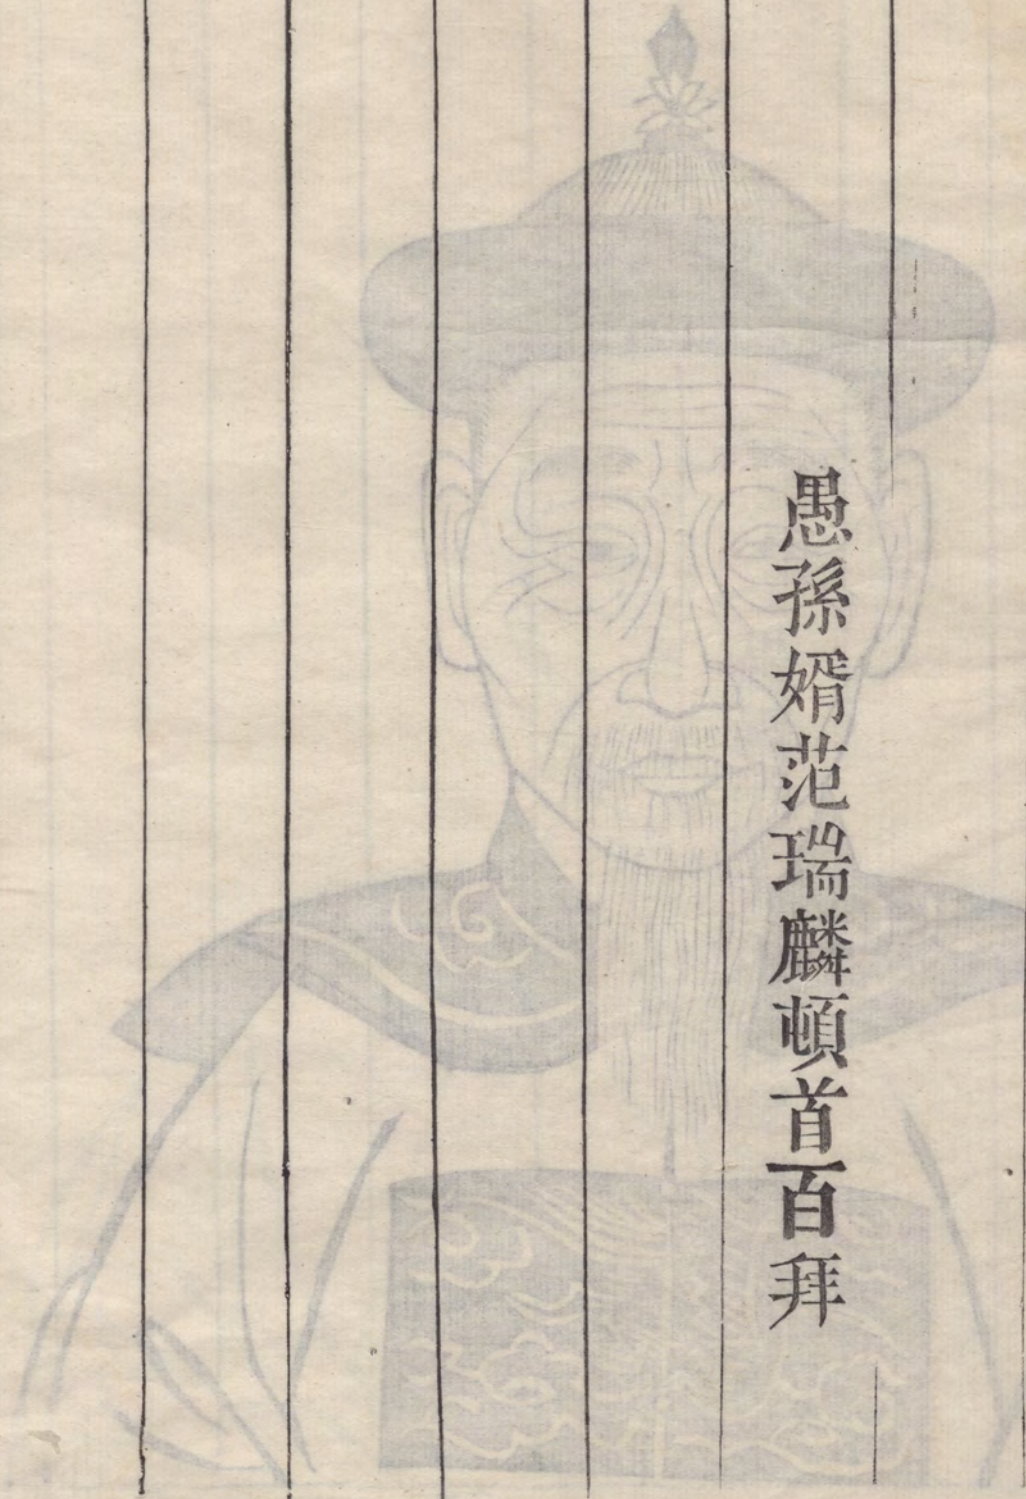 愚孫婿范瑞麟頓首百拜